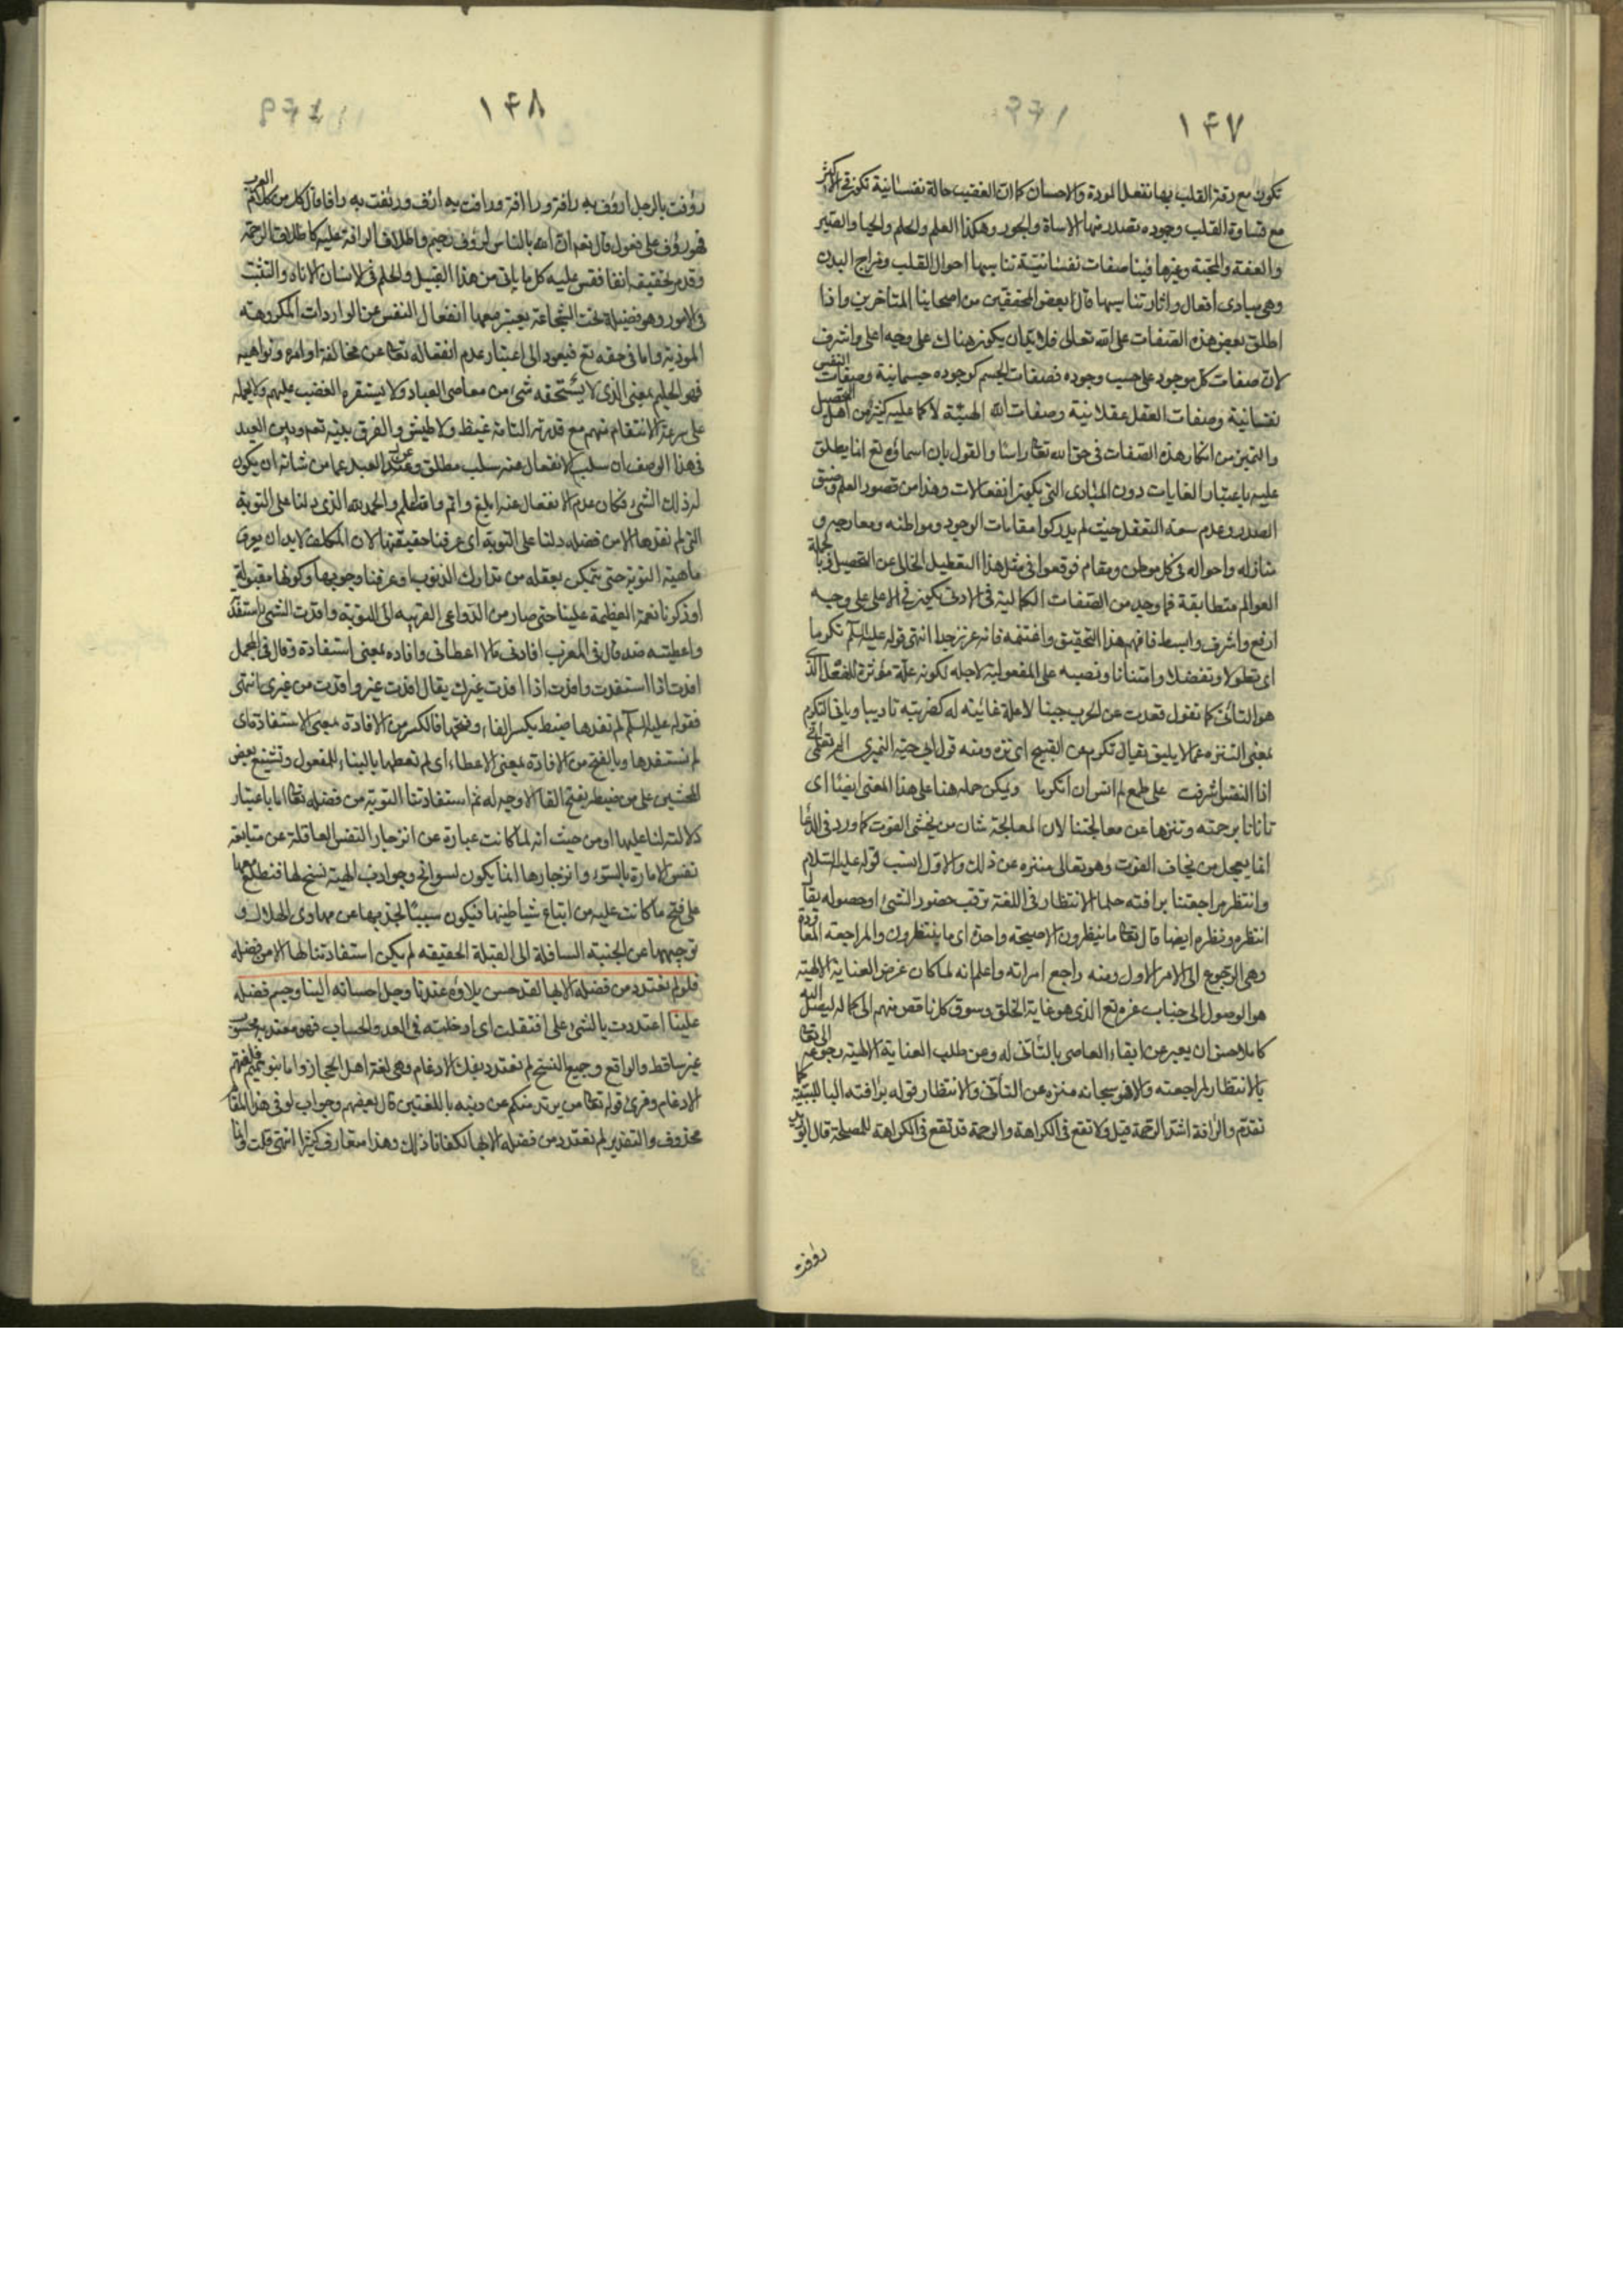 ١٤٧
تكون مع رقة القلب بها تفعل المودة والاحسان كما ان الغضب حالة نفسانية تكون في الاكثر
مع قساوة القلب وجوده تصدر منها الاساة والجور وهكذا العلم والحلم والحيا والصبر
والعفة والمحبة وغيرها فينا صفات نفسانية تناسبها احوال القلب ومزاج البدن
وهي مبادى افعال واثار تناسبها قال بعض المحققين من اصحابنا المتأخرين واذا
اطلق بعض هذه الصفات على الله تعالى فلا بد ان يكون هناك على وجه اعلى واشرف
لان صفات كل موجود على حسب وجوده فصفات الجسم كوجوده جسمانية وصفات النفس
نفسانية وصفات العقل عقلانية وصفات الله الهية لا كما عليه كثير من اهل التحصيل
والتميز من انكار هذه الصفات في حق الله تعالى راسا والقول بان اسماؤه تع انما يطلق
عليه باعتبار الغايات دون المبادى التي يكون انفعالات وهذا من قصور العلم وضيق
الصدر وعدم سعة التعقل حيث لم يدركوا مقامات الوجود ومواطنه ومعارجه و
منازله واحواله في كل موطن ومقام فوقعوا في مثل هذا التعطيل الخالى عن التحصيل وبالجملة
العوالم متطابقة فما وجد من الصفات الكمالية في الادنى يكون في الاعلى على وجه
ارفع واشرف وابسط فافهم هذا التحقيق واغتنمه فانه عزيز جدا انتهى قوله عليه السلم تكرما
اى تطولا وتفضلا وامتنانا ونصبه على المفعولية لاجله لكونه علة مؤثرة للفعل الذى
هو التأنى كما تقول قعدت عن الحرب جبنا لا علة غائية له كضربته تاديبا وياتى التكرم
بمعنى التنزه عما لا يليق يقال تكرم عن القبيح اى تنزه ومنه قول ابى حية النميرى الم تعلمى انى
اذا النفس اشرفت على طمع لم انس ان اتكرما ويمكن حمله هنا على هذا المعنى ايضا اى
تأنانا برحمته وتنزها عن معالجتنا لان المعالجة شان من يخشى الفوت كما ورد في الدعا
انما يعجل من يخاف الفوت وهو تعالى منزه عن ذلك والاول انسب قوله عليه السلام
وانتظر مراجعتنا برافته حلما الانتظار في اللغة ترقب حضور الشئ او حصوله يقال
انتظره ونظره ايضا قال تعالى ما ينظرون الا صيحة واحدة اى ما ينتظرون والمراجعة المعاودة
وهى الرجوع الى الامر الاول ومنه راجع امراته واعلم انه لما كان غرض العناية الالهية
هو الوصول الى جناب عزه تع الذى هو غاية الخلق وسوق كل ناقص منهم الى كماله ليصل اليه
كاملا حسن ان يعبر عن ابقاء العاصى بالتأنى له وعن طلب العناية الالهية رجوعه الى تعالى
بالانتظار لمراجعته والا فهو سبحانه منزه عن التأنى والانتظار قوله برافته البا للسببية كما
تقدم والرافة اشد الرحمة قيل ولا تقع في الكراهة والرحمة قد تقع في الكراهة للمصلحة قال ابو زيد
رؤفت
١٤٨
رؤفت بالرجل ارؤف به رافة ورأافة ورافت به ارئف ورئفت به رافا قال كل من كلام العرب
فهو رؤف على فعول قال تعم ان الله بالناس لرؤف رحيم واطلاق الرافة عليه كاطلاق الرحمة
وقد مر تحقيقه انفا فقس عليه كل ما ياتى من هذا القبيل والحلم في الانسان الاناة والتثبت
في الامور وهو فضيلة تحت الشجاعة يعتبر معها انفعال النفس عن الواردات المكروهة
الموذية واما في حقه تع فيعود الى اعتبار عدم انفعاله تعالى عن مخالفة اوامره ونواهيه
فهو الحليم بمعنى الذى لا يستخفه شئ من معاصى العباد ولا يستفزه الغضب عليهم ولا يحمله
على سرعة الانتقام منهم مع قدرته التامة غيظ ولا طيش والفرق بينه تعم وبين العبد
في هذا الوصف ان سلب الانفعال عنه سلب مطلق وعن العبد عما من شانه ان يكون
له ذلك الشئ فكان عدم الانفعال عنه ابلغ واتم واعظم والحمد لله الذى دلنا على التوبة
التى لم نفدها الا من فضله دلنا على التوبة اى عرفنا حقيقتها لان المكلف لا بد ان يعرف
ماهية التوبة حتى يتمكن بعقله من تدارك الذنوب او عرفنا وجوبها وكونها مقبولة
او ذكرنا نعمه العظيمة علينا حتى صار من الدواعى القريبه الى التوبة وافدت الشئ استفدته
واعطيته ضد قال في المغرب افادنى مالا اعطانى وافاده بمعنى استفادة وقال في المجمل
افدت اذا استفدت وافدت اذا افدت غيرك يقال افدت غيرى وافدت من غيرى انتهى
فقوله عليه السلم لم نفدها ضبط بكسر الفاء وفتحها فالكسر من الافادة بمعنى الاستفادة اى
لم نستفدها وبالفتح من الافادة بمعنى الاعطاء اى لم نعطها بالبناء للمفعول وتشنيع بعض
المحشين على من ضبطه بفتح الفا لا وجه له ثم استفادتنا التوبة من فضله تعالى اما باعتبار
دلالته لنا عليها او من حيث انه لما كانت عبارة عن انزجار النفس العاقلة عن متابعة
نفس الامارة بالسوء وانزجارها انما يكون لسوانح وجواذب الهية تسنح لها فتطلع بها
على قبح ما كانت عليه من اتباع شياطينها فيكون سببا لجذبها عن مهاوى الهلاك و
توجيهها عن الجنبة السافلة الى القبلة الحقيقه لم يكن استفادتنا لها الا من فضله
فلو لم نعتدد من فضله الا بها لقد حسن بلاؤه عندنا وجل احسانه الينا وجسم فضله
علينا اعتددت بالشئ على افتعلت اى ادخلته في العد والحساب فهو معتد به محسوب
غير ساقط والواقع وجميع النسخ لم نعتدد بفك الادغام وهى لغة اهل الحجاز واما بنو تميم فلغتهم
الادغام وقرئ قوله تعالى من يرتد منكم عن دينه باللغتين قال بعضهم وجواب لو في هذا المقام
محذوف والتقدير لم نعتدد من فضله الا بها لكفانا ذلك وهذا متعارف كثيرا انتهى قلت وانا